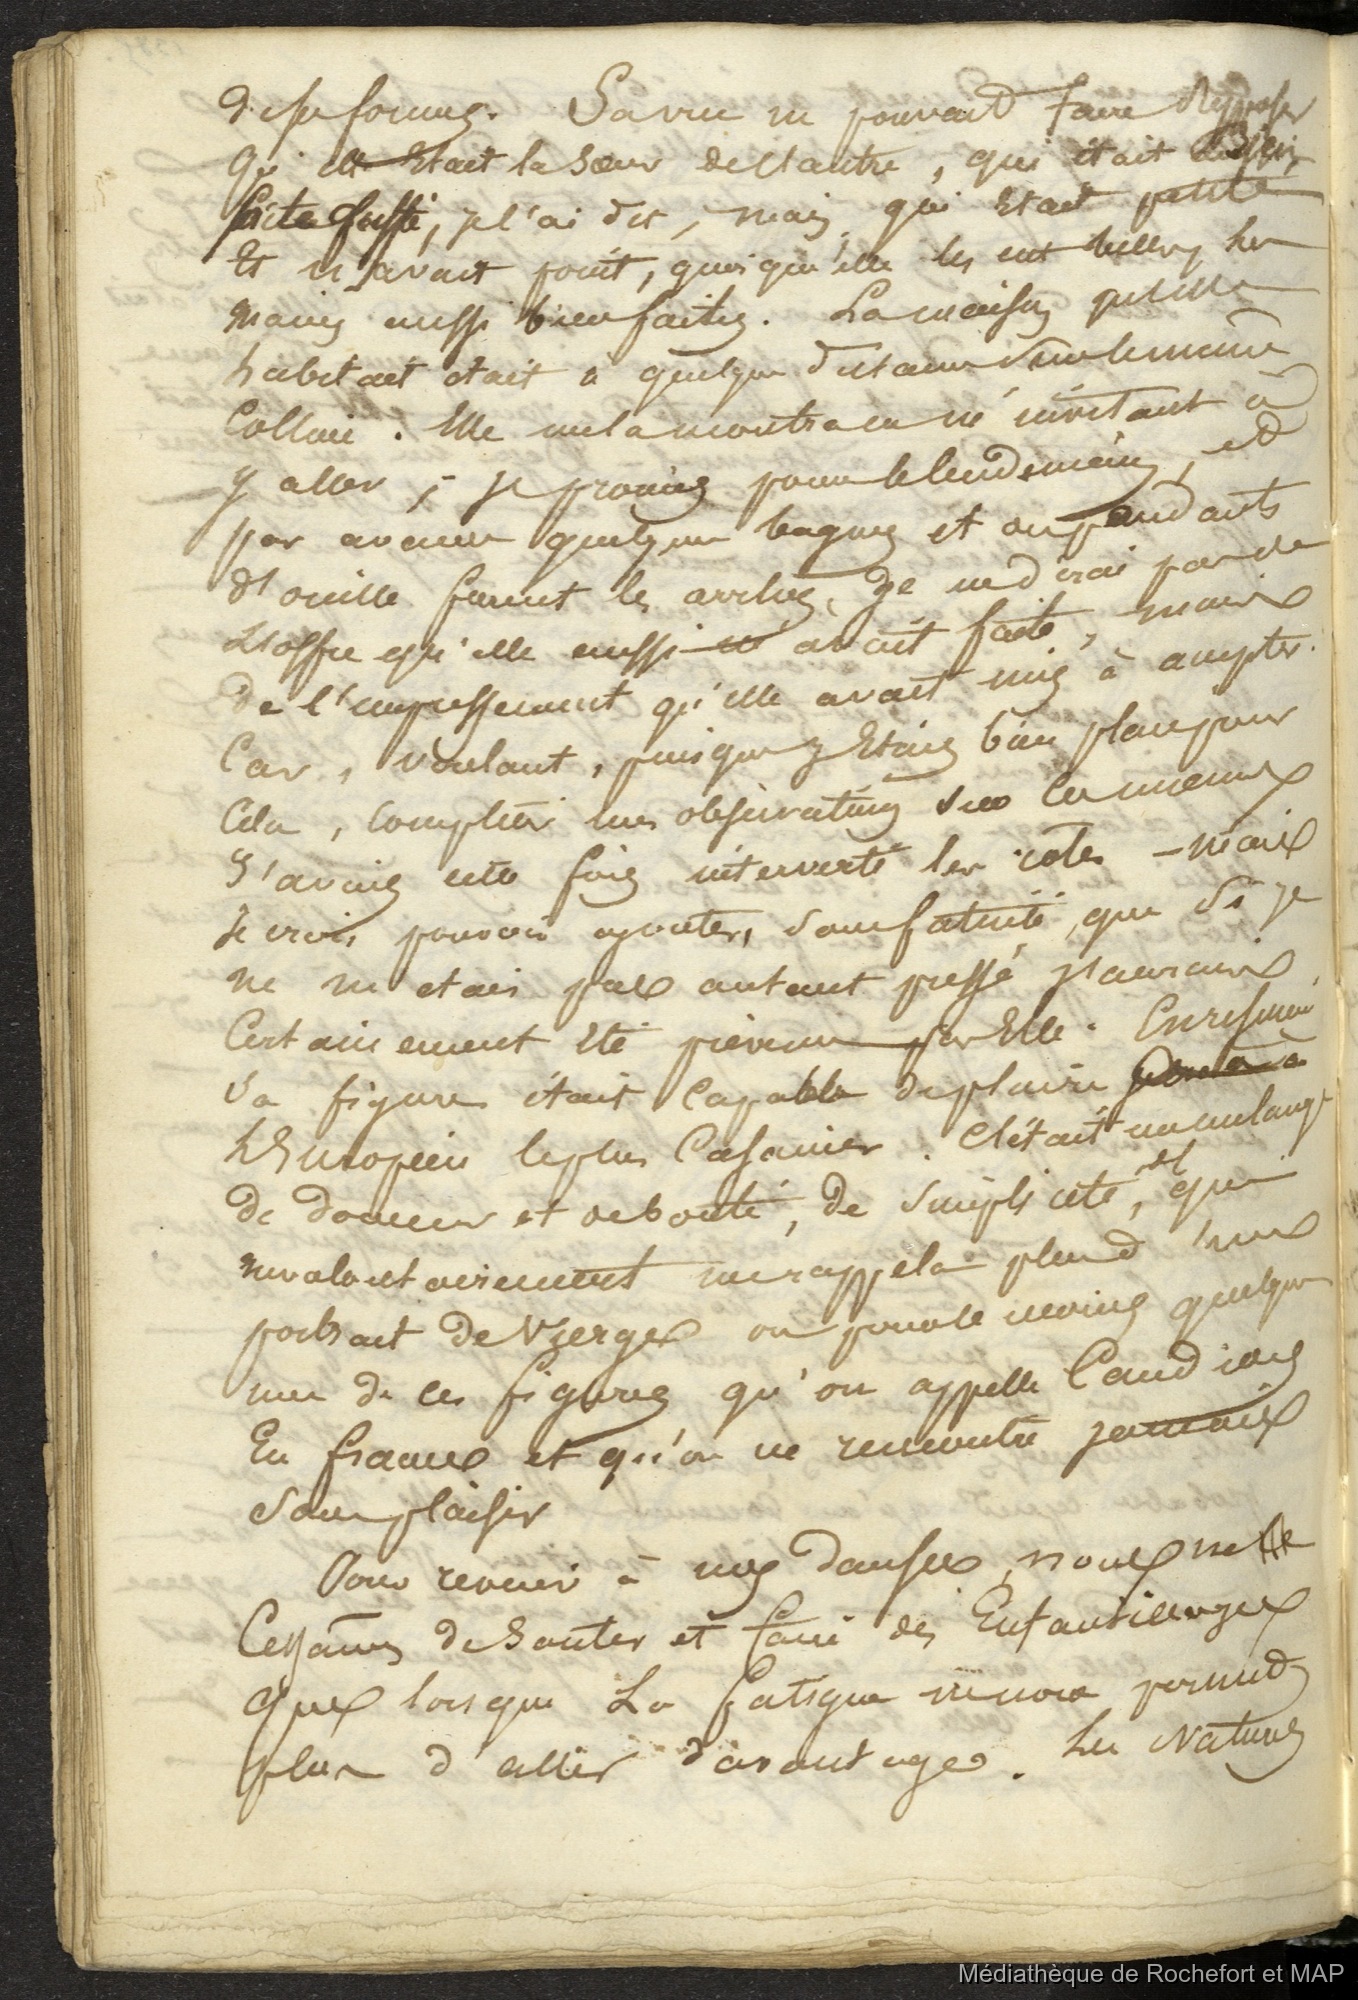 de ses formes. Sa vue ne pouvait faire
qu' était la sœur de l'autre, qui était
aussi, je l'ai dit, mais qui était petite
Et n'avait point, quoiqu'elle les eut belles, les
mains aussi bien faites. La maison qu'elle
habitait était à quelque distance sur la même
Colline. Elle me la montra en m'invitant à
y aller; je promis pour le lendemain, et
par avance quelques bagues et aux pendants
d'oreille furent les arrhes, je ne dirai pas de
L'offre qu'elle aussi avait faite, mais
De l'empressement qu'elle avait mis à accepter.
Car, voulant, puisque j'Etais bien placé pour
Cela, compléter mes observations sur les mœurs
J'avais cette fois interverti les roles – mais
Je crois pouvoir ajouter, sans fatuité, que si je
ne m'étais pas autant pressé j'aurais
Certainement été prévenu par Elle. En résumé
Sa figure était Capable de plaire à
L'Européen le plus Casanier. C'était un mélange
De douceur et de bonté, De simplicité, et qui
involontairement me rappela plus d'une
portrait De Vierges ou pour le moins quelque
une de ces figures qu'on appelle Candides
En france et qu'on ne rencontre jamais
Sans plaisir
Pour revenir à nos danses, nous ne
Cessâmes De Sauter et faire des Enfantillages
que lorsque La fatigue ne nous permit
plus d'aller d'avantage. Les Naturels
Médiathèque de Rochefort et MAP